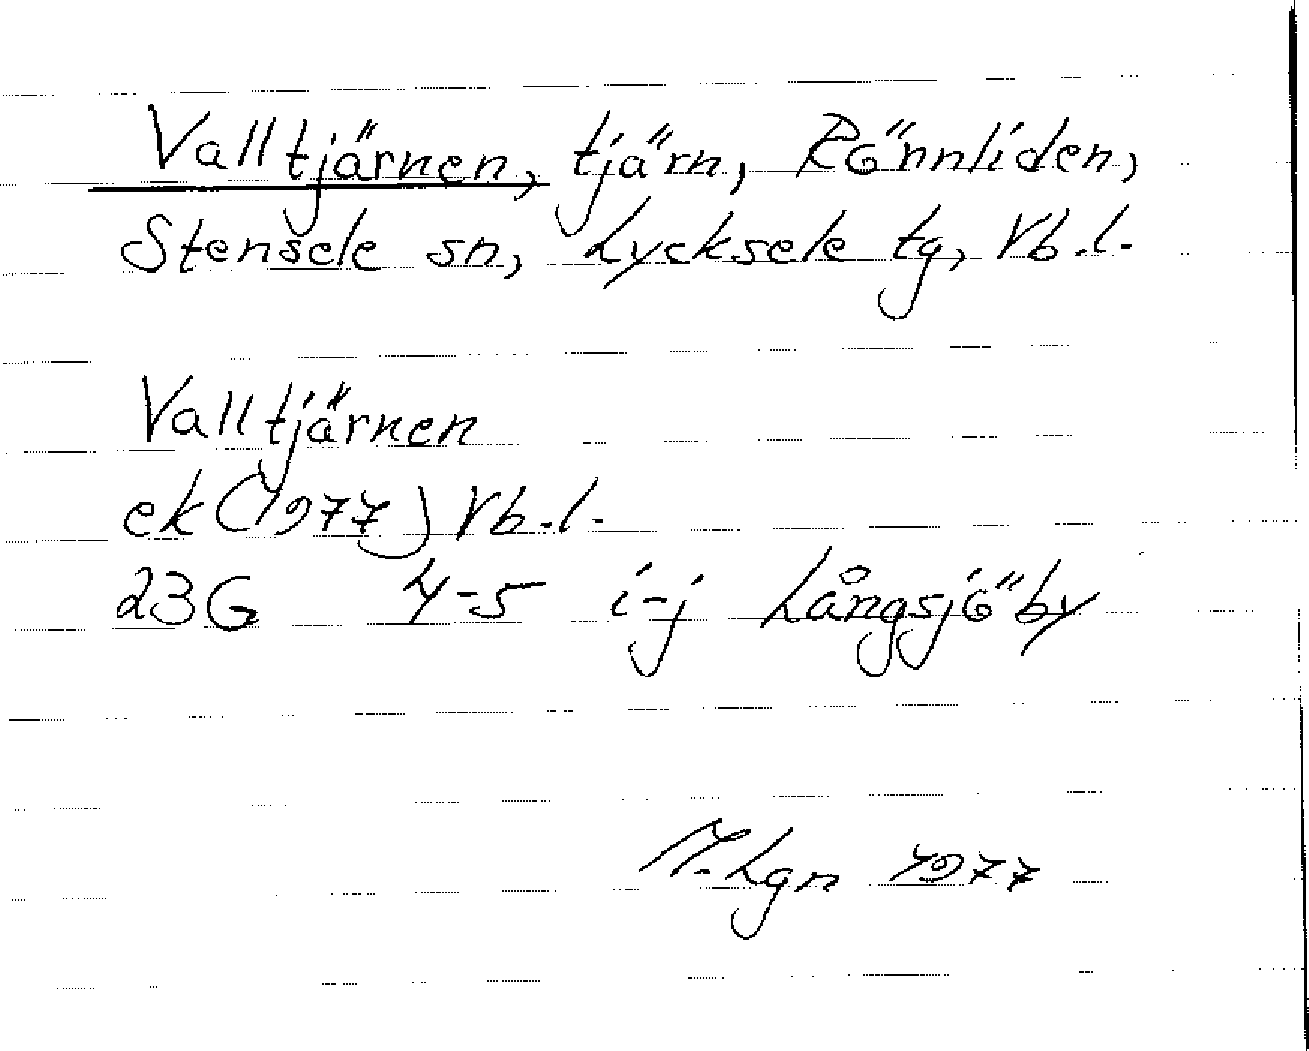 Valltjärnen, tjärn, Rönnliden,
Stensele sn, Lycksele tg, Vb.l.
Valltjärnen
ek (1977) Vb.l.
23G 4-5 i-j Långsjöby
Lgn 1977